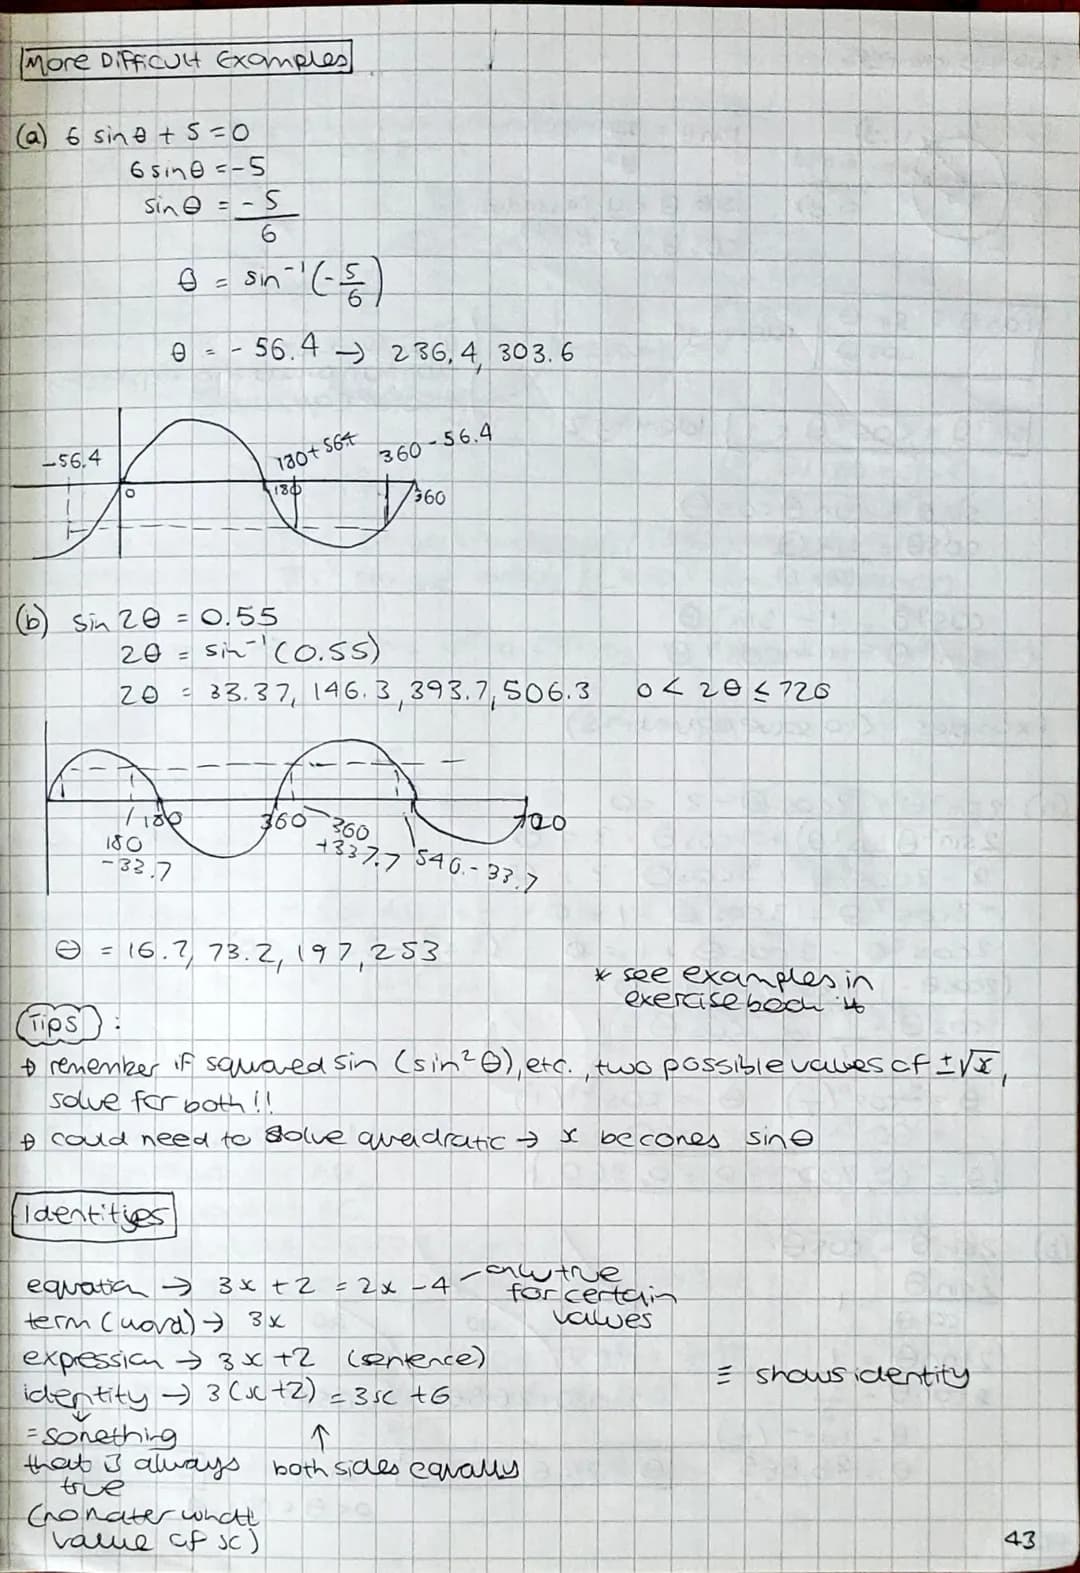 More Difficult Examples
(a) 6 sin θ + 5 = 0
6 sin θ = -5
sin θ = - 5
6
θ = sin⁻¹(-5/6)
θ = -56.4 → 236.4, 303.6
-56.4
180+56.4
360-56.4
0
180
360
(b) sin 2θ = 0.55
2θ = sin⁻¹(0.55)
2θ = 33.37, 146.3, 393.7, 506.3 0 < 2θ ≤ 720
180
360
720
180
-33.7
360
+337.7
540 - 33.7
θ = 16.7, 73.2, 197, 253
* see examples in
exercise book
Tips :
remember if squared sin (sin²θ), etc., two possible values of ±√x,
solve for both!!
could need to solve quadratic → x becomes sinθ
Identities
equation → 3x + 2 = 2x - 4 - only true
for certain
values
term (word) → 3x
expression → 3x + 2 (sentence)
identity → 3(x+2) = 3x + 6
≡ shows identity
= something
that is always
true
(no mater what
value of x)
↑
both sides equally
43